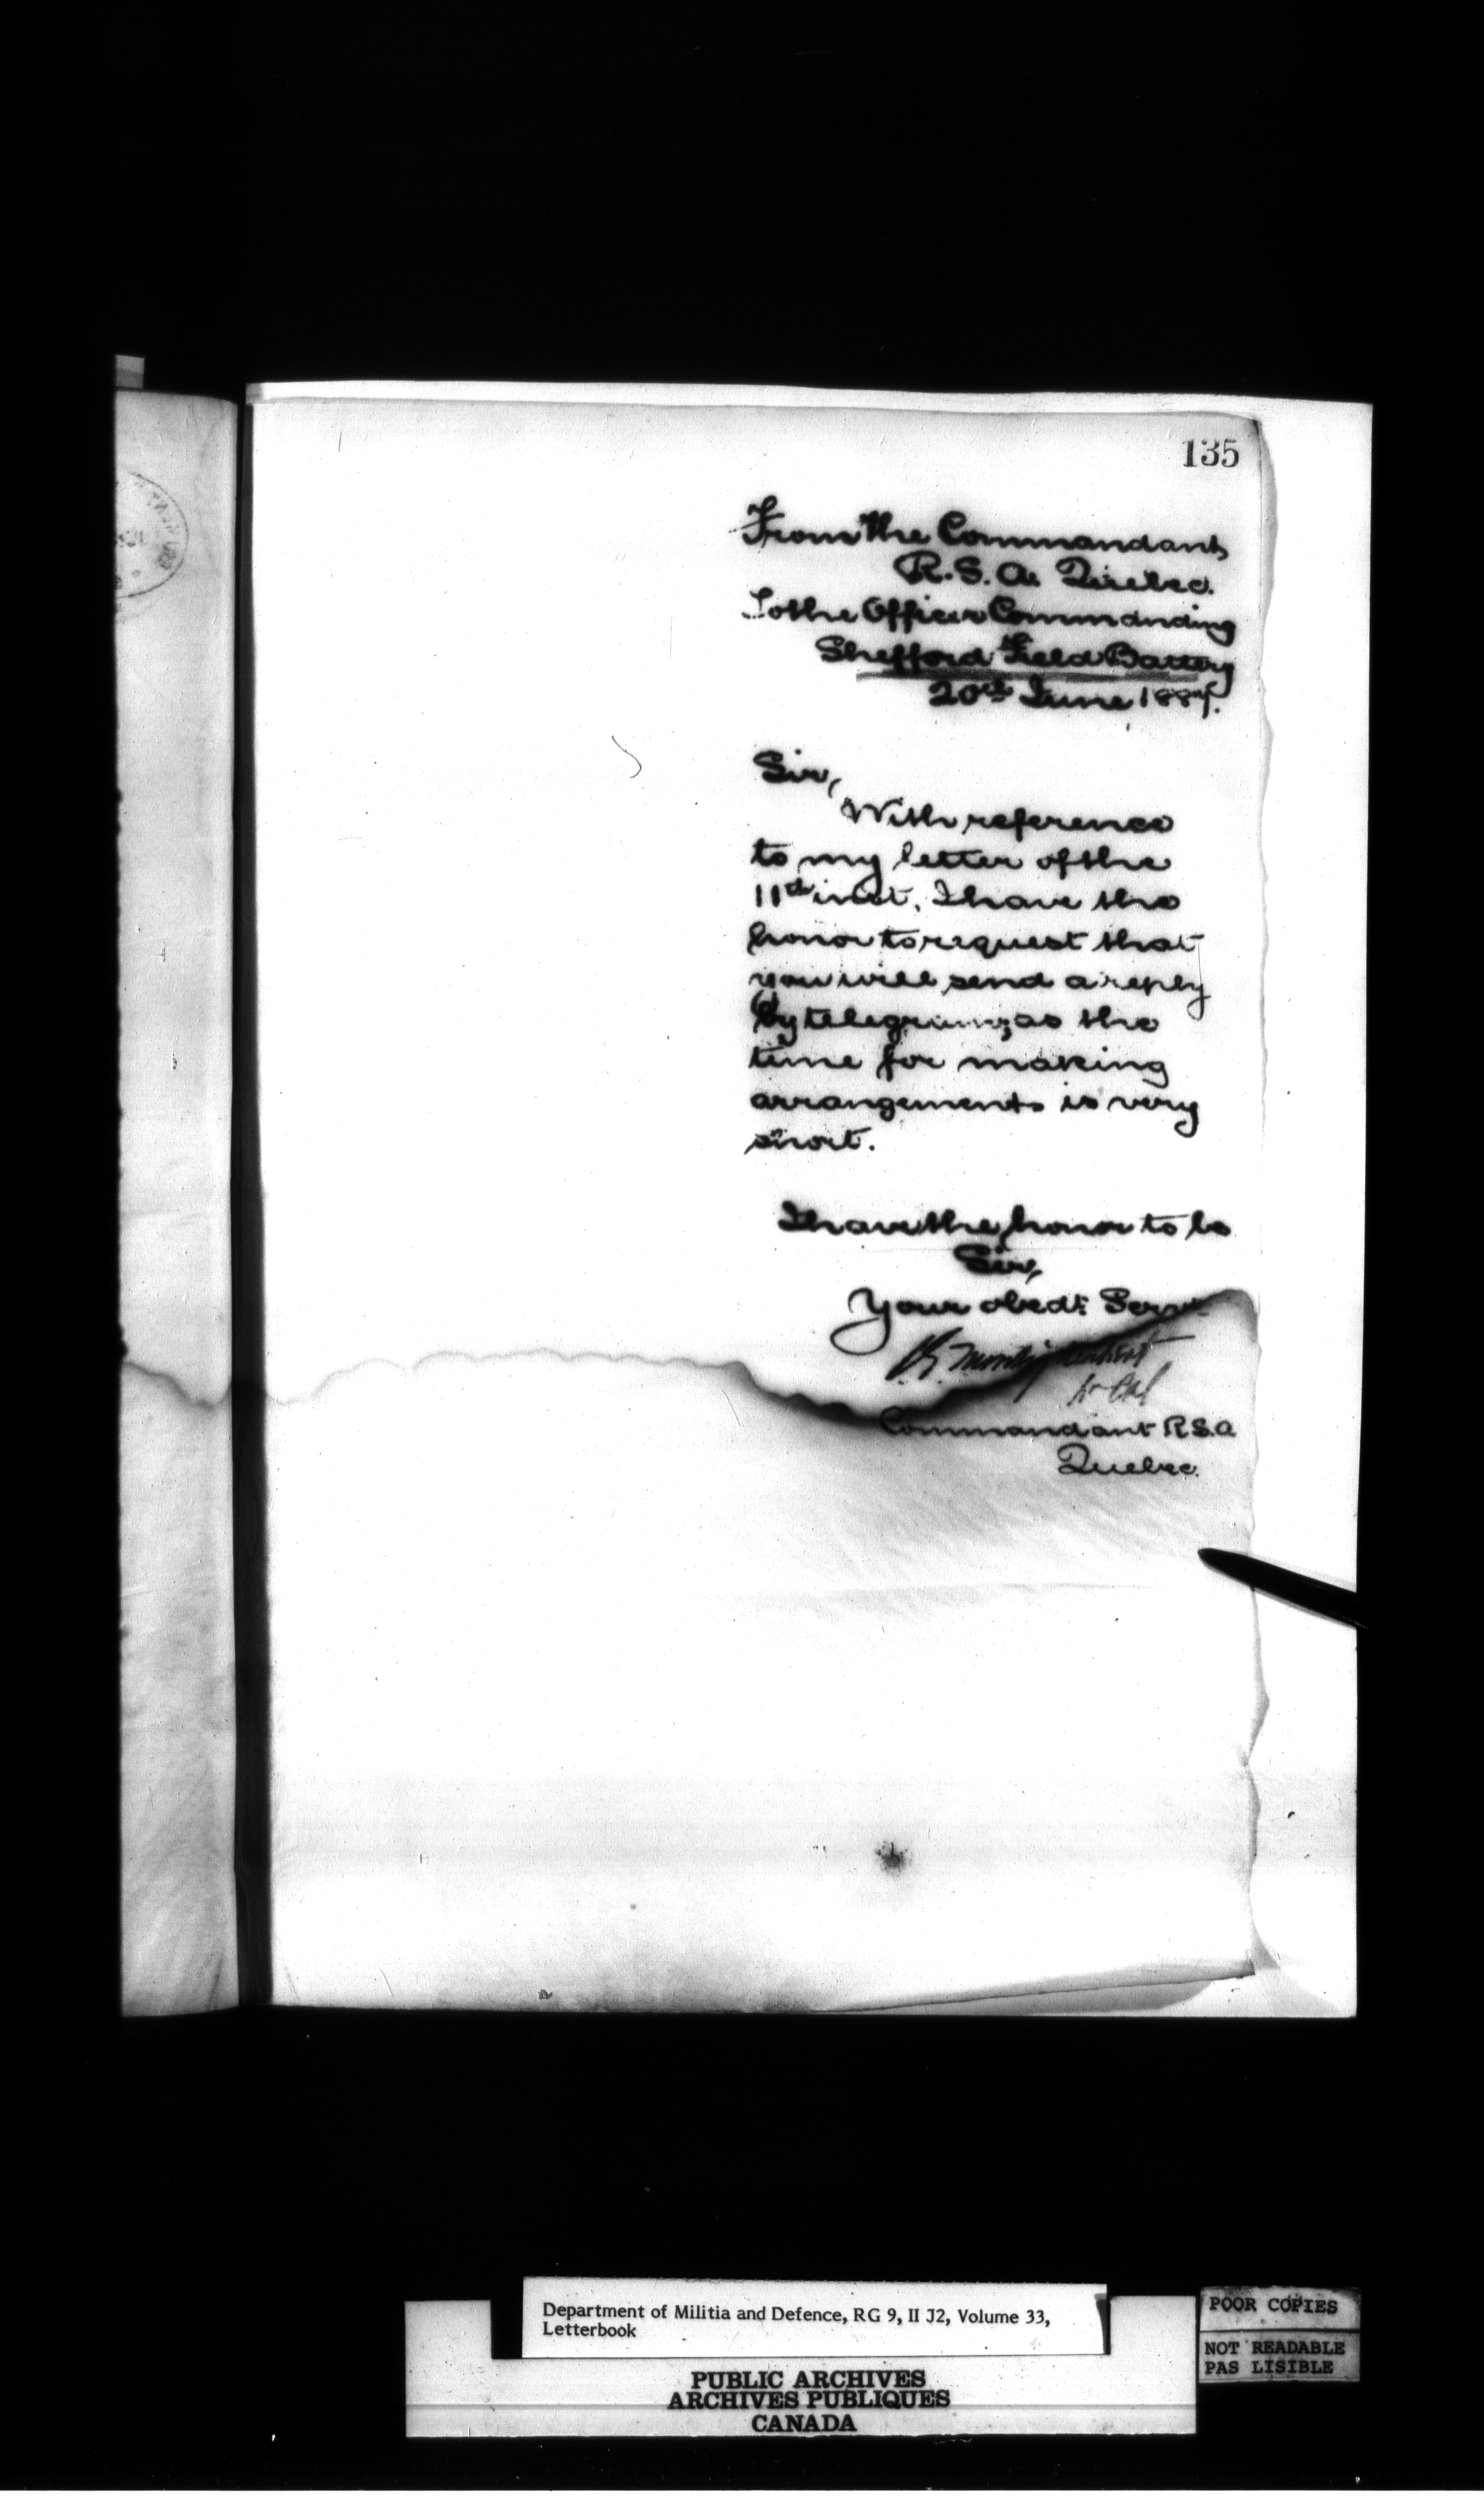 135
From the Commandant
R.S.A. Quebec.
To the Officer Commanding
Shefford Field Battery
20th June 188
Sir,
With reference
to my letter of the
11th inst. I have the
honor to request that
you will send a reply
by telegram, as the
time for making
arrangements is very
short.
I have the honor to be
Sir,
Your obedt. Servt
Lt Col
Commandant R.S.A
Quebec.
Department of Militia and Defence, RG 9, II J2, Volume 33,
Letterbook
PUBLIC ARCHIVES
ARCHIVES PUBLIQUES
CANADA
POOR COPIES
NOT READABLE
PAS LISIBLE